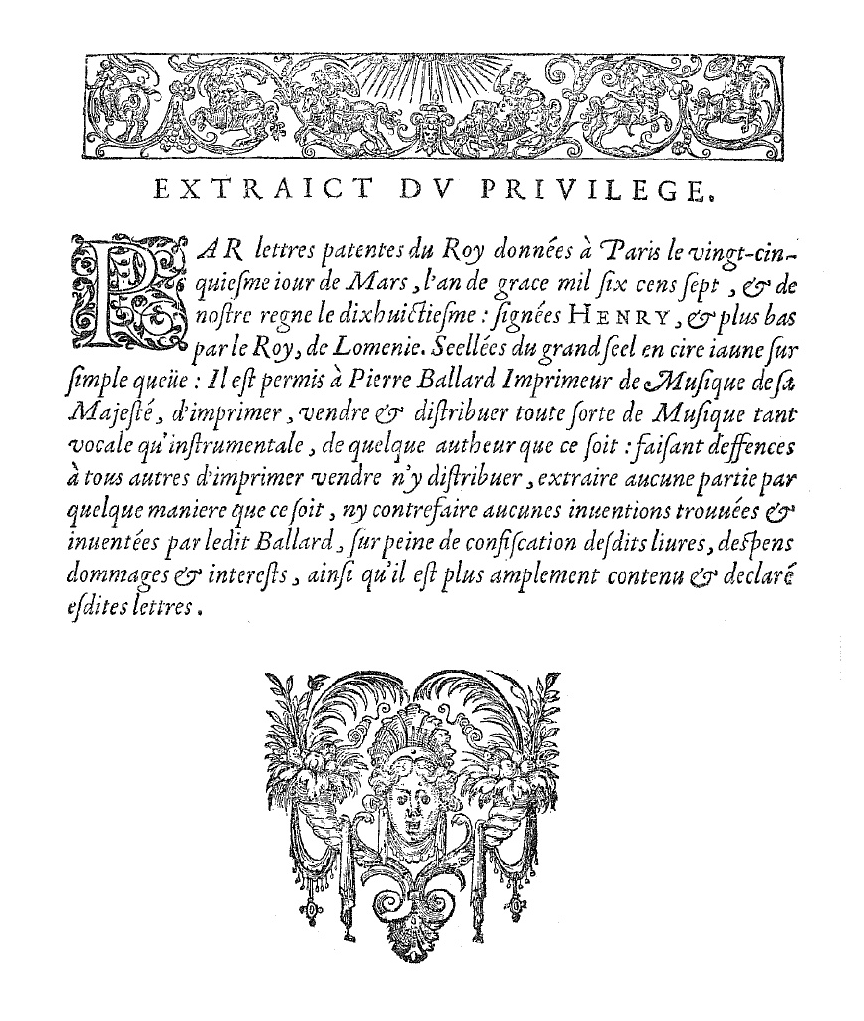 EXTRAICT DV PRIVILEGE.
PAR lettres patentes du Roy données à Paris le vingt-cin-
quieſme iour de Mars, l'an de grace mil ſix cens ſept, & de
noſtre regne le dixhuictieſme : ſignées HENRY, & plus bas
par le Roy, de Lomenie. Seellées du grand ſeel en cire iaune ſur
ſimple queüe : Il eſt permis à Pierre Ballard Imprimeur de Muſique de ſa
Majeſté, d'imprimer, vendre & diſtribuer toute ſorte de Muſique tant
vocale qu'inſtrumentale, de quelque autheur que ce ſoit : faiſant deffences
à tous autres d'imprimer vendre n'y diſtribuer, extraire aucune partie par
quelque maniere que ce ſoit, ny contrefaire aucunes inuentions trouuées &
inuentées par ledit Ballard, ſur peine de confiſcation deſdits liures, deſpens
dommages & intereſts, ainſi qu'il eſt plus amplement contenu & declaré
eſdites lettres.